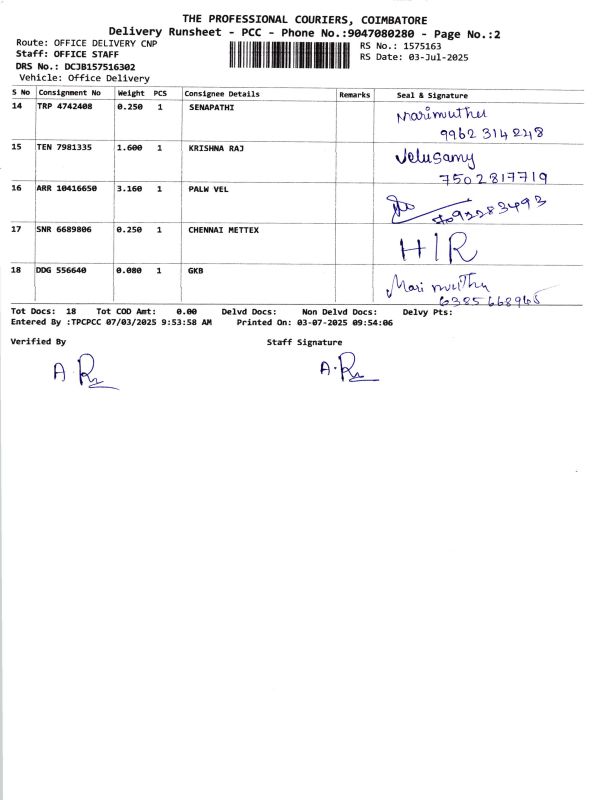 THE PROFESSIONAL COURIERS, COIMBATORE
Delivery Runsheet - PCC - Phone No.:9047080280 - Page No.:2
Route: OFFICE DELIVERY CNP
Staff: OFFICE STAFF
DRS No.: DCJB157516302
Vehicle: Office Delivery
RS No.: 1575163
RS Date: 03-Jul-2025
S No Consignment No Weight PCS Consignee Details Remarks Seal & Signature
14 TRP 4742408 0.250 1 SENAPATHI Marimuthu
9962 314248
15 TEN 7981335 1.600 1 KRISHNA RAJ Velusamy
7502817719
16 ARR 10416650 3.160 1 PALW VEL
17 SNR 6689806 0.250 1 CHENNAI METTEX H/R
18 DDG 556640 0.080 1 GKB Mari muthu
6385668965
Tot Docs: 18 Tot COD Amt: 0.00 Delvd Docs: Non Delvd Docs: Delvy Pts:
Entered By :TPCPCC 07/03/2025 9:53:58 AM Printed On: 03-07-2025 09:54:06
Verified By Staff Signature